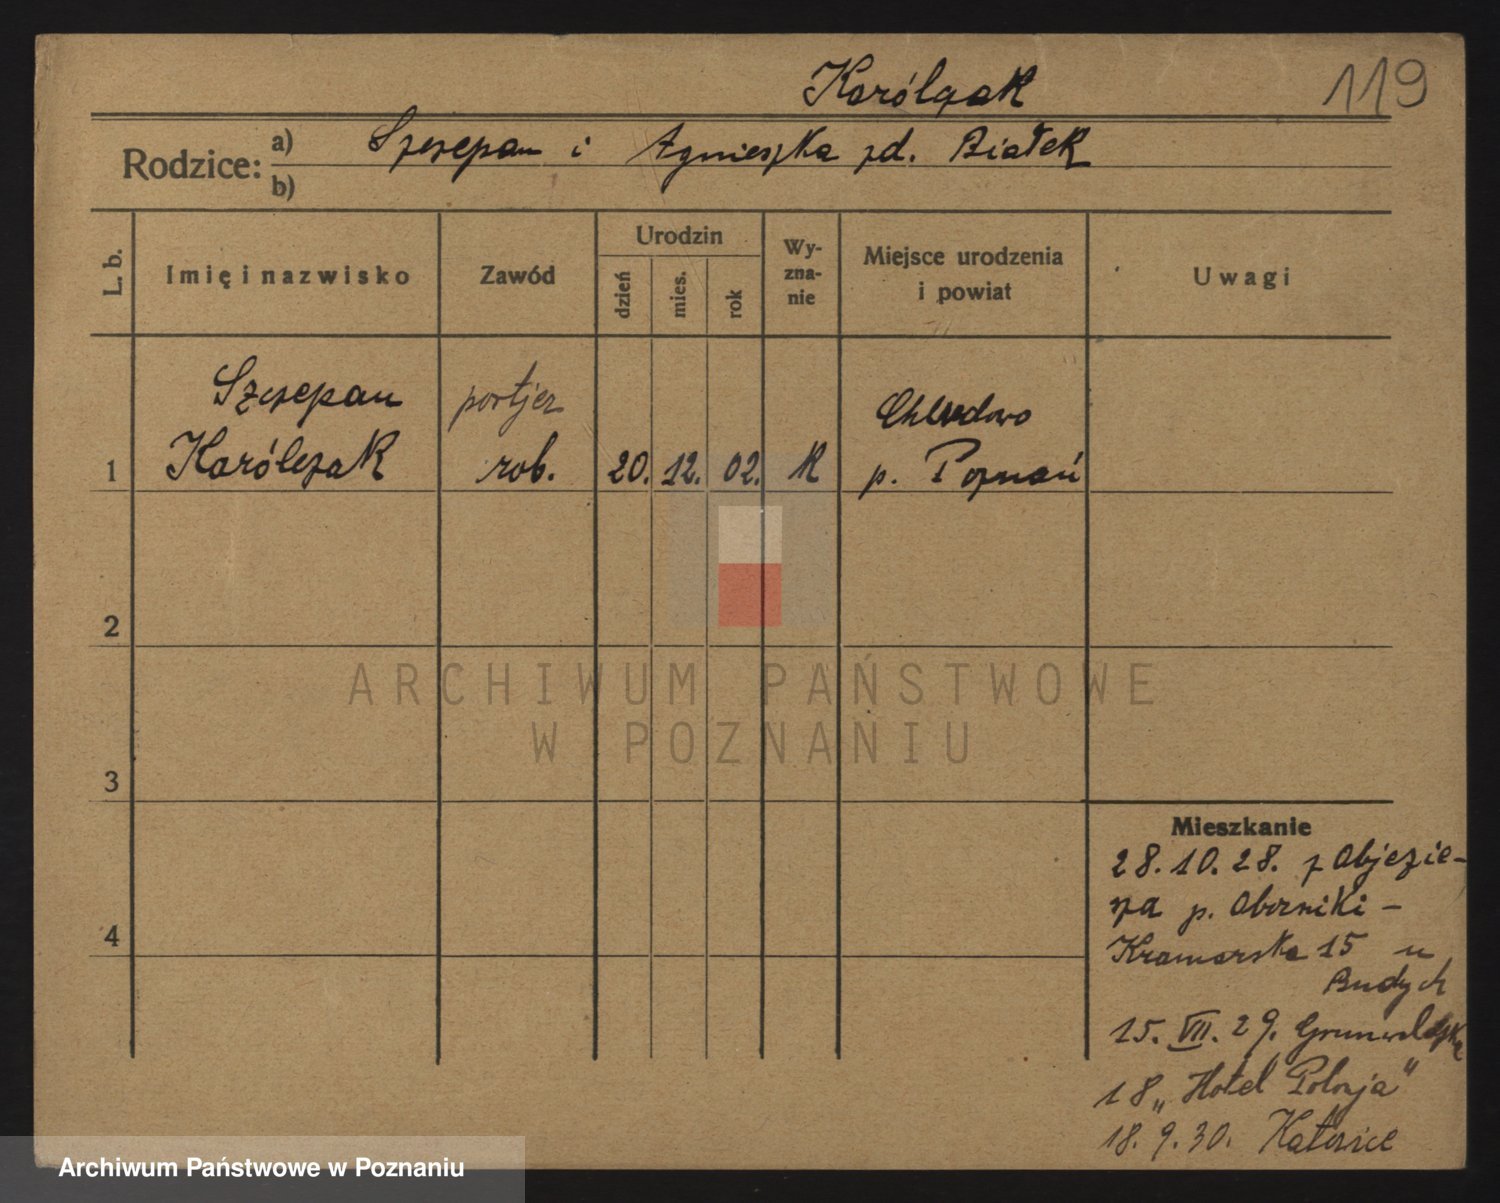 Karólczak
119
Rodzice:
a) Szczepan i Agnieszka zd. Białek
b)
L. b.
Imię i nazwisko
Zawód
Urodzin
dzień
mies.
rok
Wy-
zna-
nie
Miejsce urodzenia
i powiat
Uwagi
Szczepan
portjer
Chludowo
1
Karólczak
rob.
20.
12.
02.
K
p. Poznań
2
ARCHIWUM PAŃSTWOWE
W POZNANIU
3
Mieszkanie
28.10.28. z Objezie-
rza p. Oborniki –
4
Kramarska 15 u
Budych
15. VII. 29. Grunwaldzka
18 „Hotel Polonja"
18. 9. 30. Katowice
Archiwum Państwowe w Poznaniu